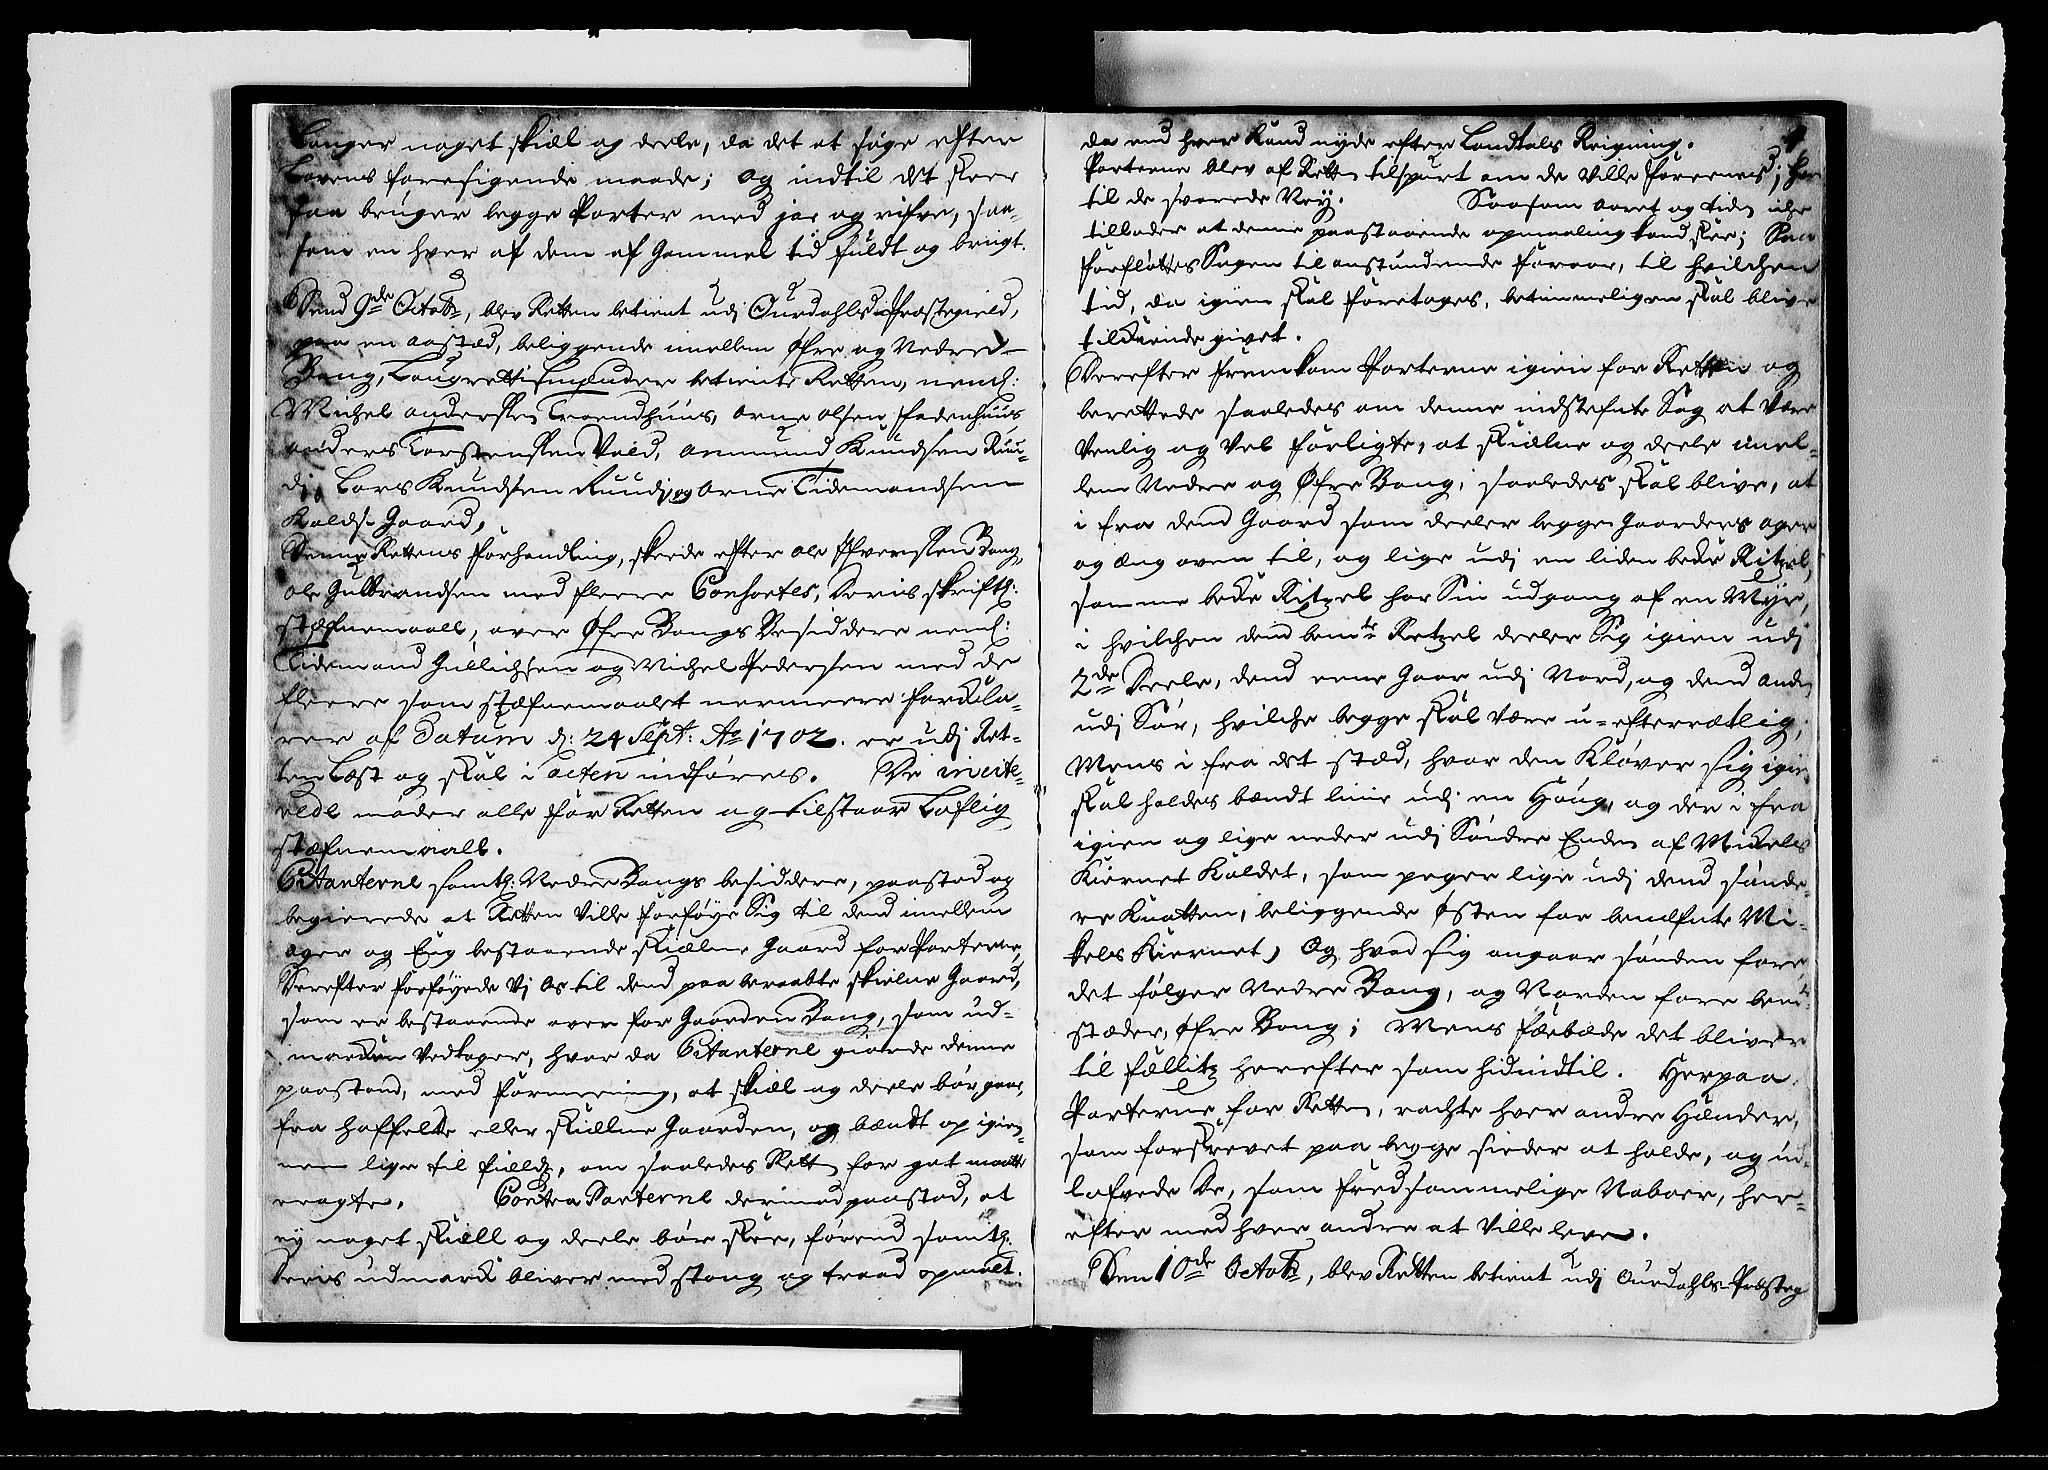 langer noget skiæl og deele, da det at søge efter
Lovens foresigende maade; og indtil det skeer
saa bruger begge Parter med jær og rifve, saa-
som en hver af dem af Gammel tid fuldt og brugt.
Dend 9de Octobr, blev Retten betient udj Ourdahls Præstegield,
paa en aastæd, beliggende imellem Øfre og Nedre
Bang, Laugrettismænder betiente Retten, nemlig:
Michel anderssen Troendhuus, arne olsen
anders Torstenssen Vold, ammund Knudsen Ruu-
d, Lars Knudsen Ruud, og Arne Tidemandsen
Gaard,
Denne Rettens forhandling, skeede efter ole Ifverssen Bang,
ole Gulbrandsen med fleere Consortes, Deris skriftl:
stæfnemaall, over Øfre Bangs Besiddere neml:
Tidemand Gullichsen og Michel Pedersen med de
fleere som stæfnemaalet nermeere forkla-
rer af Datum d: 24 Sept: Ao 1702. er udj Ret-
ten Læst og skal i acten indføres. De incite-
rede møder alle for Retten og tilstaar Loflig
stæfnemaall.
Citanterne samtl: Nedre Bangs besiddere, paastod og
begierede at Retten ville forføye Sig til dend imellem
ager og Eng bestaaende skielne Gaard for Parterne,
Derefter forføyede Vj os til dend paa beraabte skielne Gaard,
som er bestaaende over for Gaarden Bang, som ud-
marken vedkager, hvor da Citanterne giorde denne
paastand, med formeening, at skiæl og deele bør gaae,
fra haffelde eller skiællne Gaarden, og bændt op igien-
nem lige til fields, om saaledes Retten for got maatte
eragte. Contra Parterne derimod paastod, at
ey noget skiæll og deele bør skee, førend samtl:
Deris udmark bliver med stang og traad opmaalt.
da end hver kand nyde efter Landtals Reigning.
Parterne blev af Retten tilspurt om de ville foreenes; her
til de svarede Ney. Saasom aaret og tiden iche
tillader at denne paastaaende opmaaling kand skee; Saa
forfløttes Sagen til anstundende foraar, til hvilchen
tid, da igien skal foretages, betimmeligen skal blive
tilkiende givet.
Derefter fremkom Parterne igien for Retten og
berettede saaledes om denne indstefnte Sag at være
Venlig og Vel forligte, at skiælne og deele imel-
lem Nedre og Øfre Bang, saaledes skal blive, at
i fra dend Gaard som deeler begge Gaarders ager
og Eng oven til, og lige udj en liden beche Ritzel,
samme beche Ritzel har Sin udgang af en Myr,
i hvilchen dend bemte Retzel deeler Sig igien udj
2de Deele, dend eene Gaar udj Nord, og dend anden
udj Sør, hvilche begge skal være u-efterrætlig,
Mens i fra det stæd, hvor den Kløver sig igien
skal holdes bændt linie udj en Houg, og der i fra
igien og lige neder udj Søndre Enden af Michels
Kiernet kaldet, som peger lige udj dend sønde-
re Knatten, beliggende østen for benefnte Mi-
kels Kiernet, Og hvad sig angaar sønden fore,
det følger Nedre Bang, og Norden fore bemte
stæder, Øfre Bang; Mens Færbæde det bliver
til fællitz herefter som hidindtil. Herpaa
Parterne for Retten, rachte hver andre Hænder,
som forskrevet paa begge sieder at holde, og ud-
lofvede De, som fredsommelige Naboer, her-
efter med hver andre at ville leve.
Den 10de Octobr, blev Retten betient udj Ourdahls Præsteg